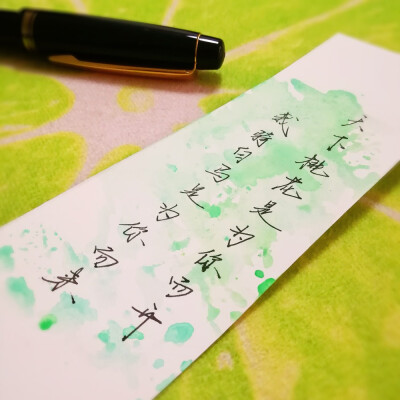 天下桃花是为你而开
我骑白马是为你而来